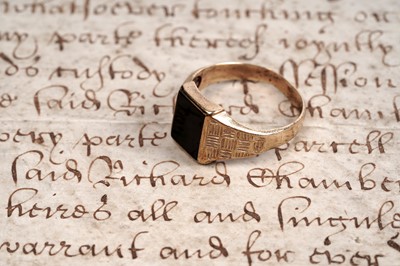 whatsoever touching or
any parte thereof joyntly
custody session
said Richard Chamb
parte parcell
said Richard Chamber
heires all and singule
warrant and for ever